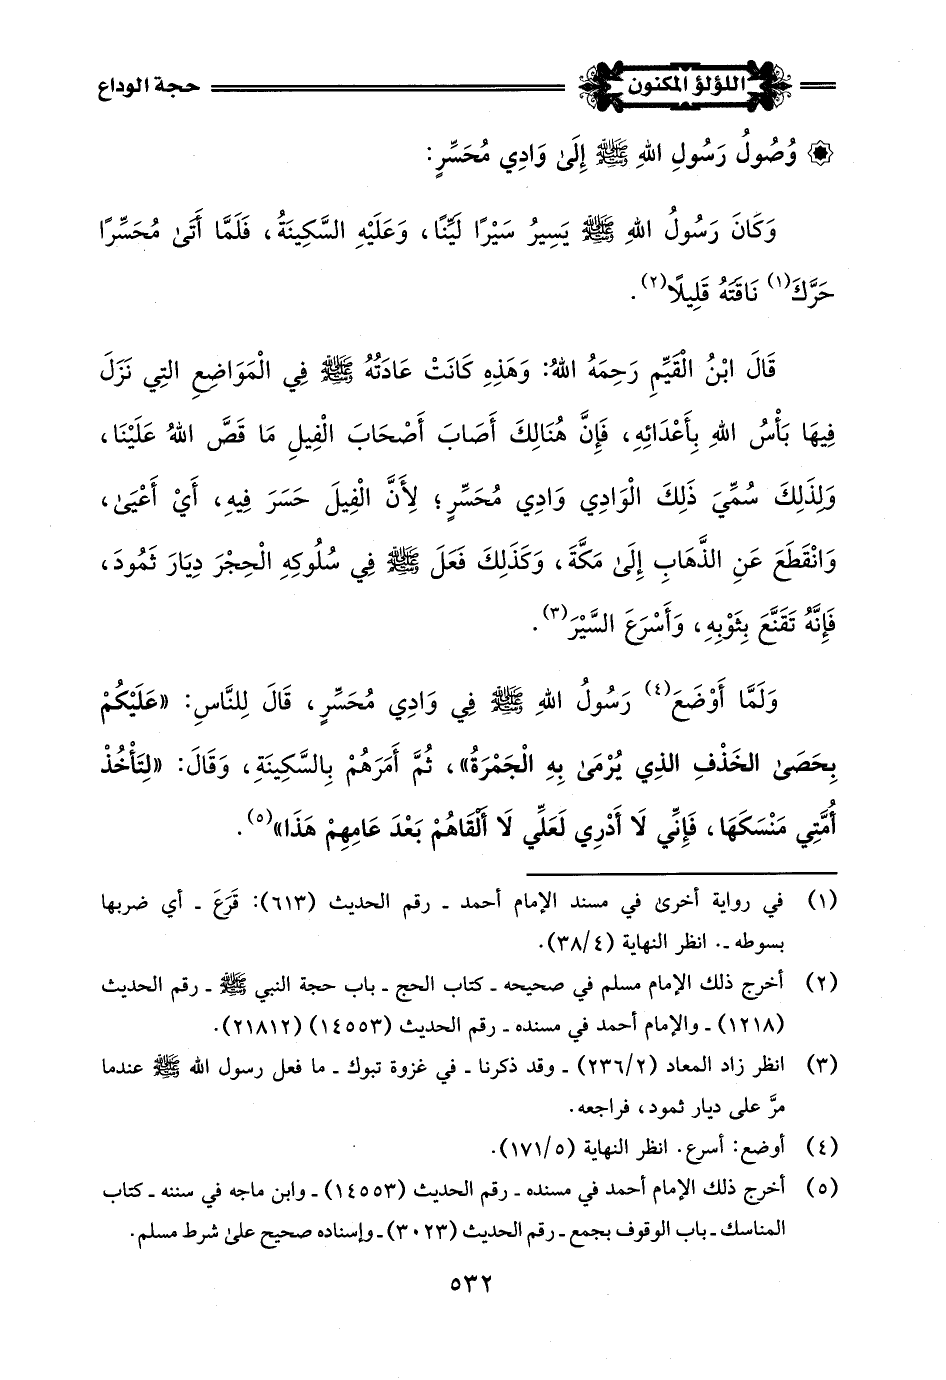 اللؤلؤ المكنون حجة الوداع
وُصُولُ رَسُولِ اللهِ ﷺ إِلَىٰ وَادِي مُحَسِّرٍ:
وَكَانَ رَسُولُ اللهِ ﷺ يَسِيرُ سَيْرًا لَيِّنًا، وَعَلَيْهِ السَّكِينَةُ، فَلَمَّا أَتَىٰ مُحَسِّرًا
حَرَّكَ(١) نَاقَتَهُ قَلِيلًا(٢).
قَالَ ابْنُ الْقَيِّمِ رَحِمَهُ اللهُ: وَهَذِهِ كَانَتْ عَادَتُهُ ﷺ فِي الْمَوَاضِعِ التِي نَزَلَ
فِيهَا بَأْسُ اللهِ بِأَعْدَائِهِ، فَإِنَّ هُنَالِكَ أَصَابَ أَصْحَابَ الْفِيلِ مَا قَصَّ اللهُ عَلَيْنَا،
وَلِذَلِكَ سُمِّيَ ذَلِكَ الْوَادِي وَادِي مُحَسِّرٍ؛ لِأَنَّ الْفِيلَ حَسَرَ فِيهِ، أَيْ أَعْيَىٰ،
وَانْقَطَعَ عَنِ الذَّهَابِ إِلَىٰ مَكَّةَ، وَكَذَلِكَ فَعَلَ ﷺ فِي سُلُوكِهِ الْحِجْرَ دِيَارَ ثَمُودَ،
فَإِنَّهُ تَقَنَّعَ بِثَوْبِهِ، وَأَسْرَعَ السَّيْرَ(٣).
وَلَمَّا أَوْضَعَ(٤) رَسُولُ اللهِ ﷺ فِي وَادِي مُحَسِّرٍ، قَالَ لِلنَّاسِ: «عَلَيْكُمْ
بِحَصَىٰ الخَذْفِ الذِي يُرْمَىٰ بِهِ الْجَمْرَةُ»، ثُمَّ أَمَرَهُمْ بِالسَّكِينَةِ، وَقَالَ: «لِتَأْخُذْ
أُمَّتِي مَنْسَكَهَا، فَإِنِّي لَا أَدْرِي لَعَلِّي لَا أَلْقَاهُمْ بَعْدَ عَامِهِمْ هَذَا»(٥).
(١) في رواية أخرىٰ في مسند الإمام أحمد ـ رقم الحديث (٦١٣): قَرَعَ ـ أي ضربها
بسوطه ـ. انظر النهاية (٣٨/٤).
(٢) أخرج ذلك الإمام مسلم في صحيحه ـ كتاب الحج ـ باب حجة النبي ﷺ ـ رقم الحديث
(١٢١٨) ـ والإمام أحمد في مسنده ـ رقم الحديث (١٤٥٥٣) (٢١٨١٢).
(٣) انظر زاد المعاد (٢٣٦/٢) ـ وقد ذكرنا ـ في غزوة تبوك ـ ما فعل رسول الله ﷺ عندما
مرَّ على ديار ثمود، فراجعه.
(٤) أوضع: أسرع. انظر النهاية (١٧١/٥).
(٥) أخرج ذلك الإمام أحمد في مسنده ـ رقم الحديث (١٤٥٥٣) ـ وابن ماجه في سننه ـ كتاب
المناسك ـ باب الوقوف بجمع ـ رقم الحديث (٣٠٢٣) ـ وإسناده صحيح علىٰ شرط مسلم.
٥٣٢